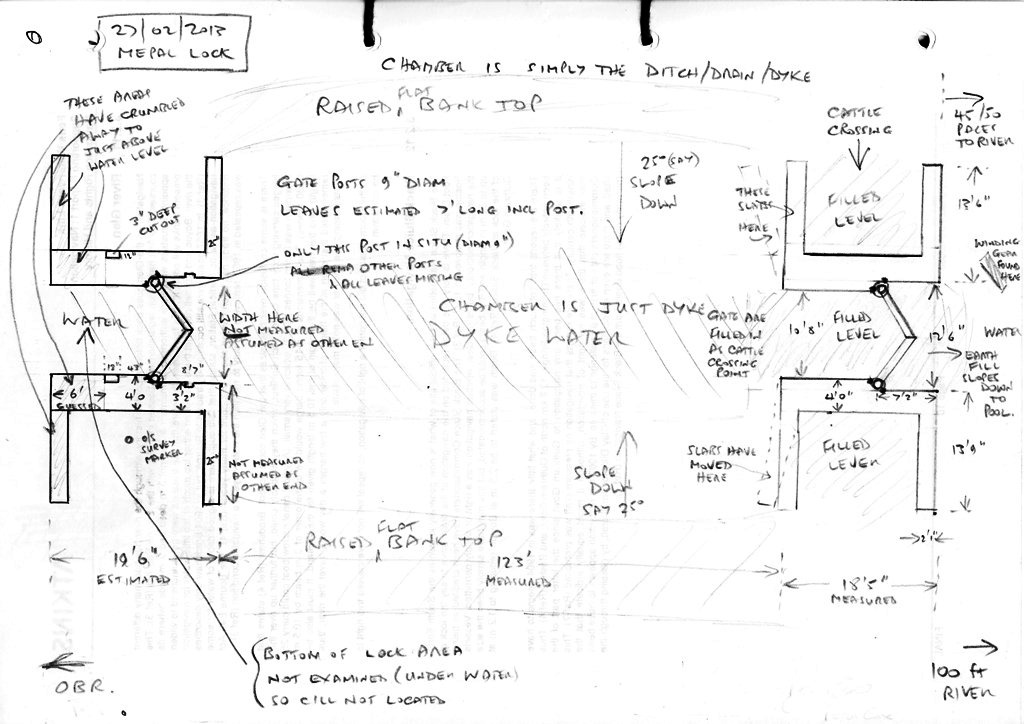 27/02/2013
MEPAL LOCK
CHAMBER IS SIMPLY THE DITCH/DRAIN/DYKE
RAISED, FLAT BANK TOP
THESE AREAS
HAVE CRUMBLED
AWAY TO
JUST ABOVE
WATER LEVEL
3" DEEP
CUT OUT
12"
25"
GATE POSTS 9" DIAM
LEAVES ESTIMATED 7' LONG INCL POST.
ONLY THIS POST IN SITU (DIAM 9")
ALL OTHER POSTS
& ALL LEAVES MISSING
25° (SAY)
SLOPE
DOWN
CATTLE
CROSSING
45/50
PACES
TO RIVER
THESE
SLABS
HERE
FILLED
LEVEL
13'6"
WINDING
GEAR
FOUND
HERE
WATER
WIDTH HERE
NOT MEASURED
ASSUMED AS OTHER EN
CHAMBER IS JUST DYKE
DYKE WATER
GATE ARE
FILLED IN
AS CATTLE
CROSSING
POINT
10'8"
FILLED
LEVEL
12'6"
WATER
EARTH
FILL
SLOPES
DOWN
TO
POOL.
12"
43"
8'7"
6'
GUESSED
4'0
3'2"
4'0"
7'2"
O/S
SURVEY
MARKER
25"
NOT MEASURED
ASSUMED AS
OTHER END
SLOPE
DOWN
SAY 25°
SLABS HAVE
MOVED
HERE
FILLED
LEVEL
13'9"
2'1"
RAISED FLAT BANK TOP
19'6"
ESTIMATED
123'
MEASURED
18'5"
MEASURED
BOTTOM OF LOCK AREA
NOT EXAMINED (UNDER WATER)
SO CILL NOT LOCATED
OBR.
100 ft
RIVER